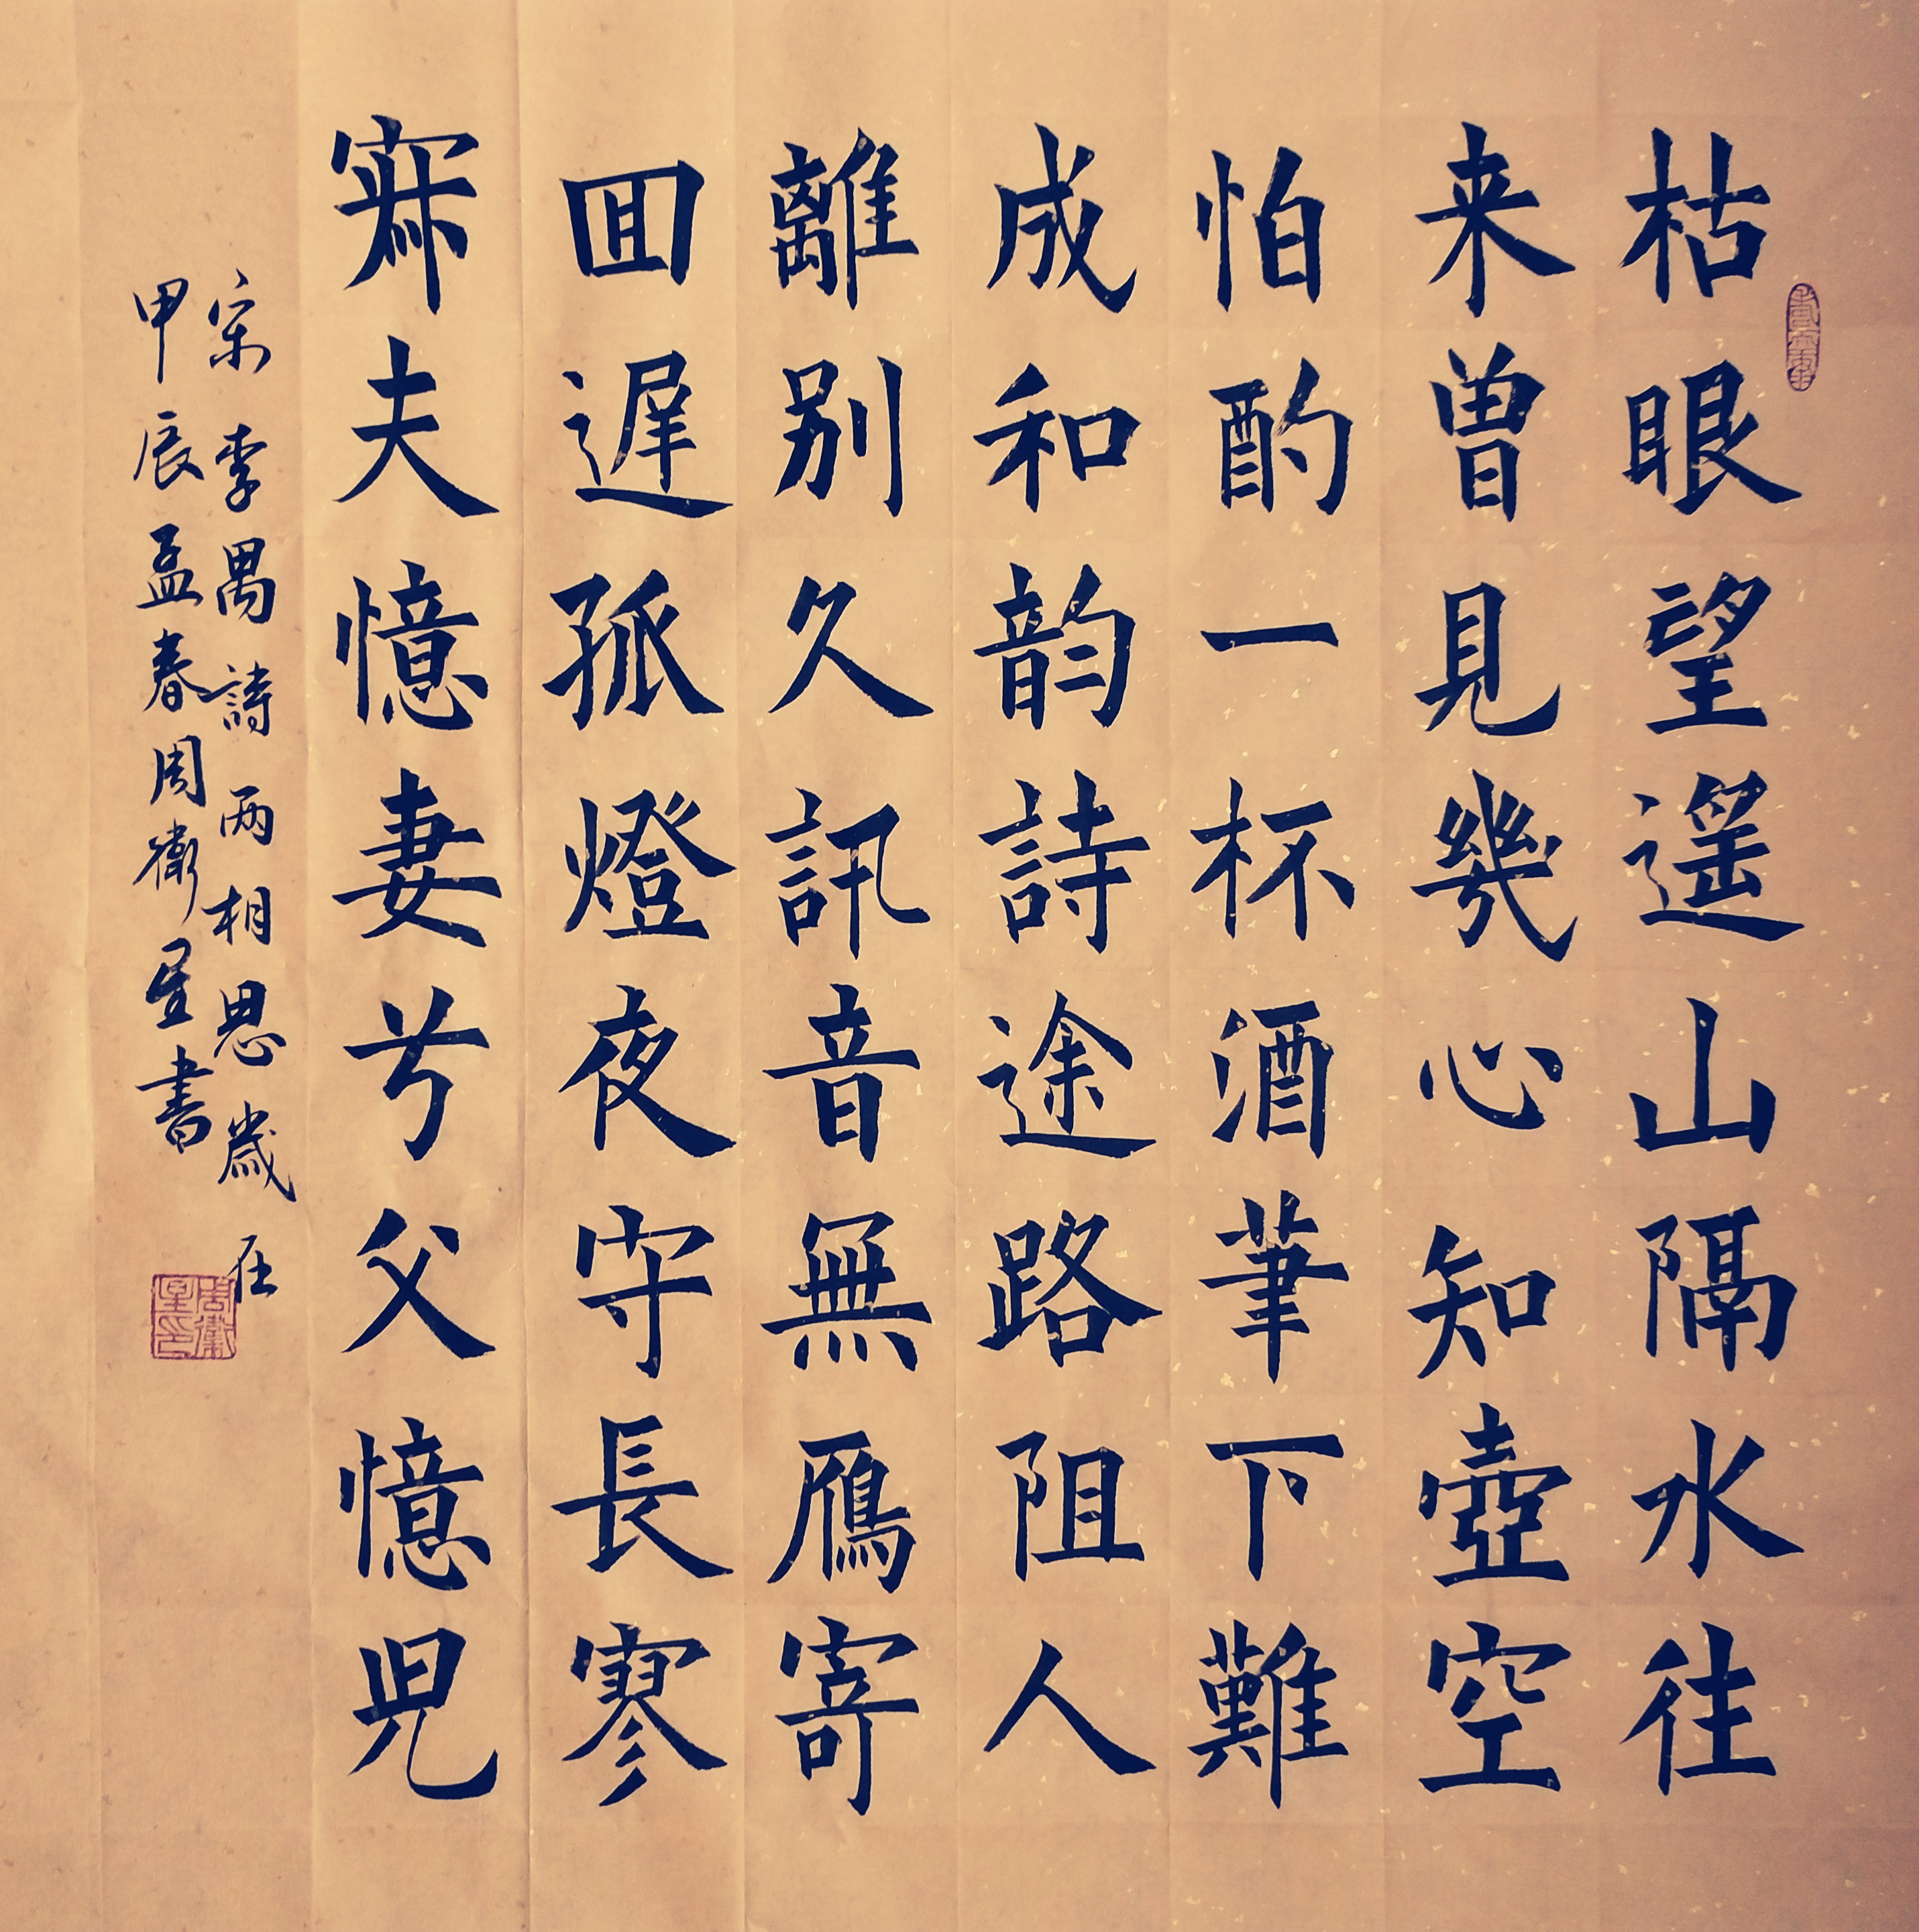 枯眼望遥山隔水往
来曾見幾心知壺空
怕酌一杯酒筆下難
成和韵詩途路阻人
離别久訊音無鴈寄
回遲孤燈夜守長寥
寂夫憶妻兮父憶兒
宋李禺詩兩相思歲在
甲辰孟春周衛星書
周衛星印